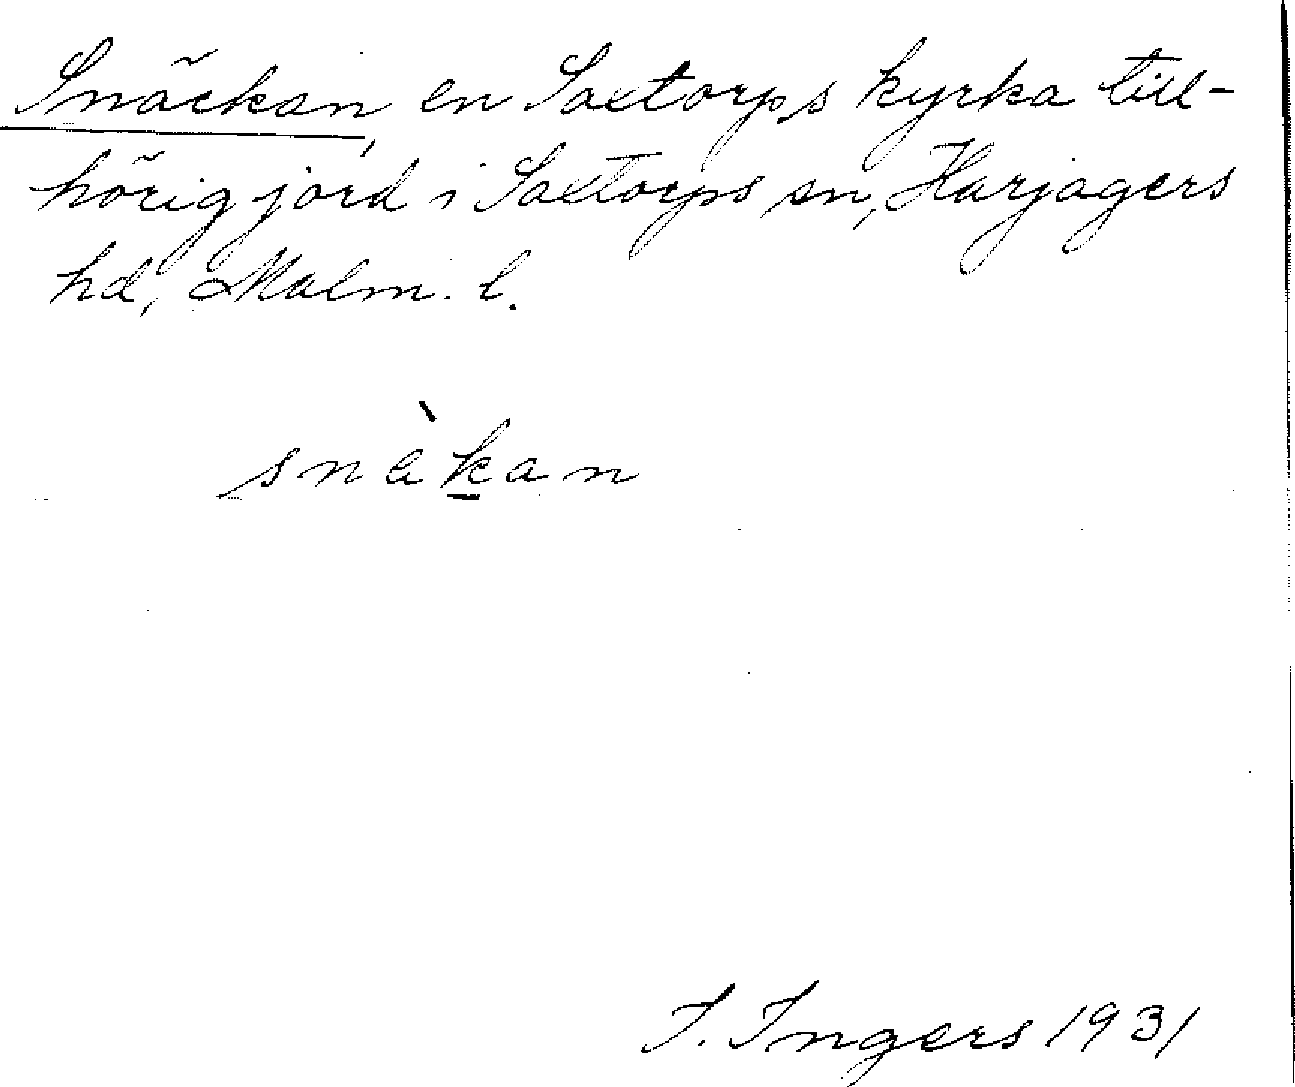 Snäckan, en Saxtorps kyrka till-
hörig jord i Saxtorps sn, Harjagers
hd, Malm. l.
snàkan
I. Ingers 1931